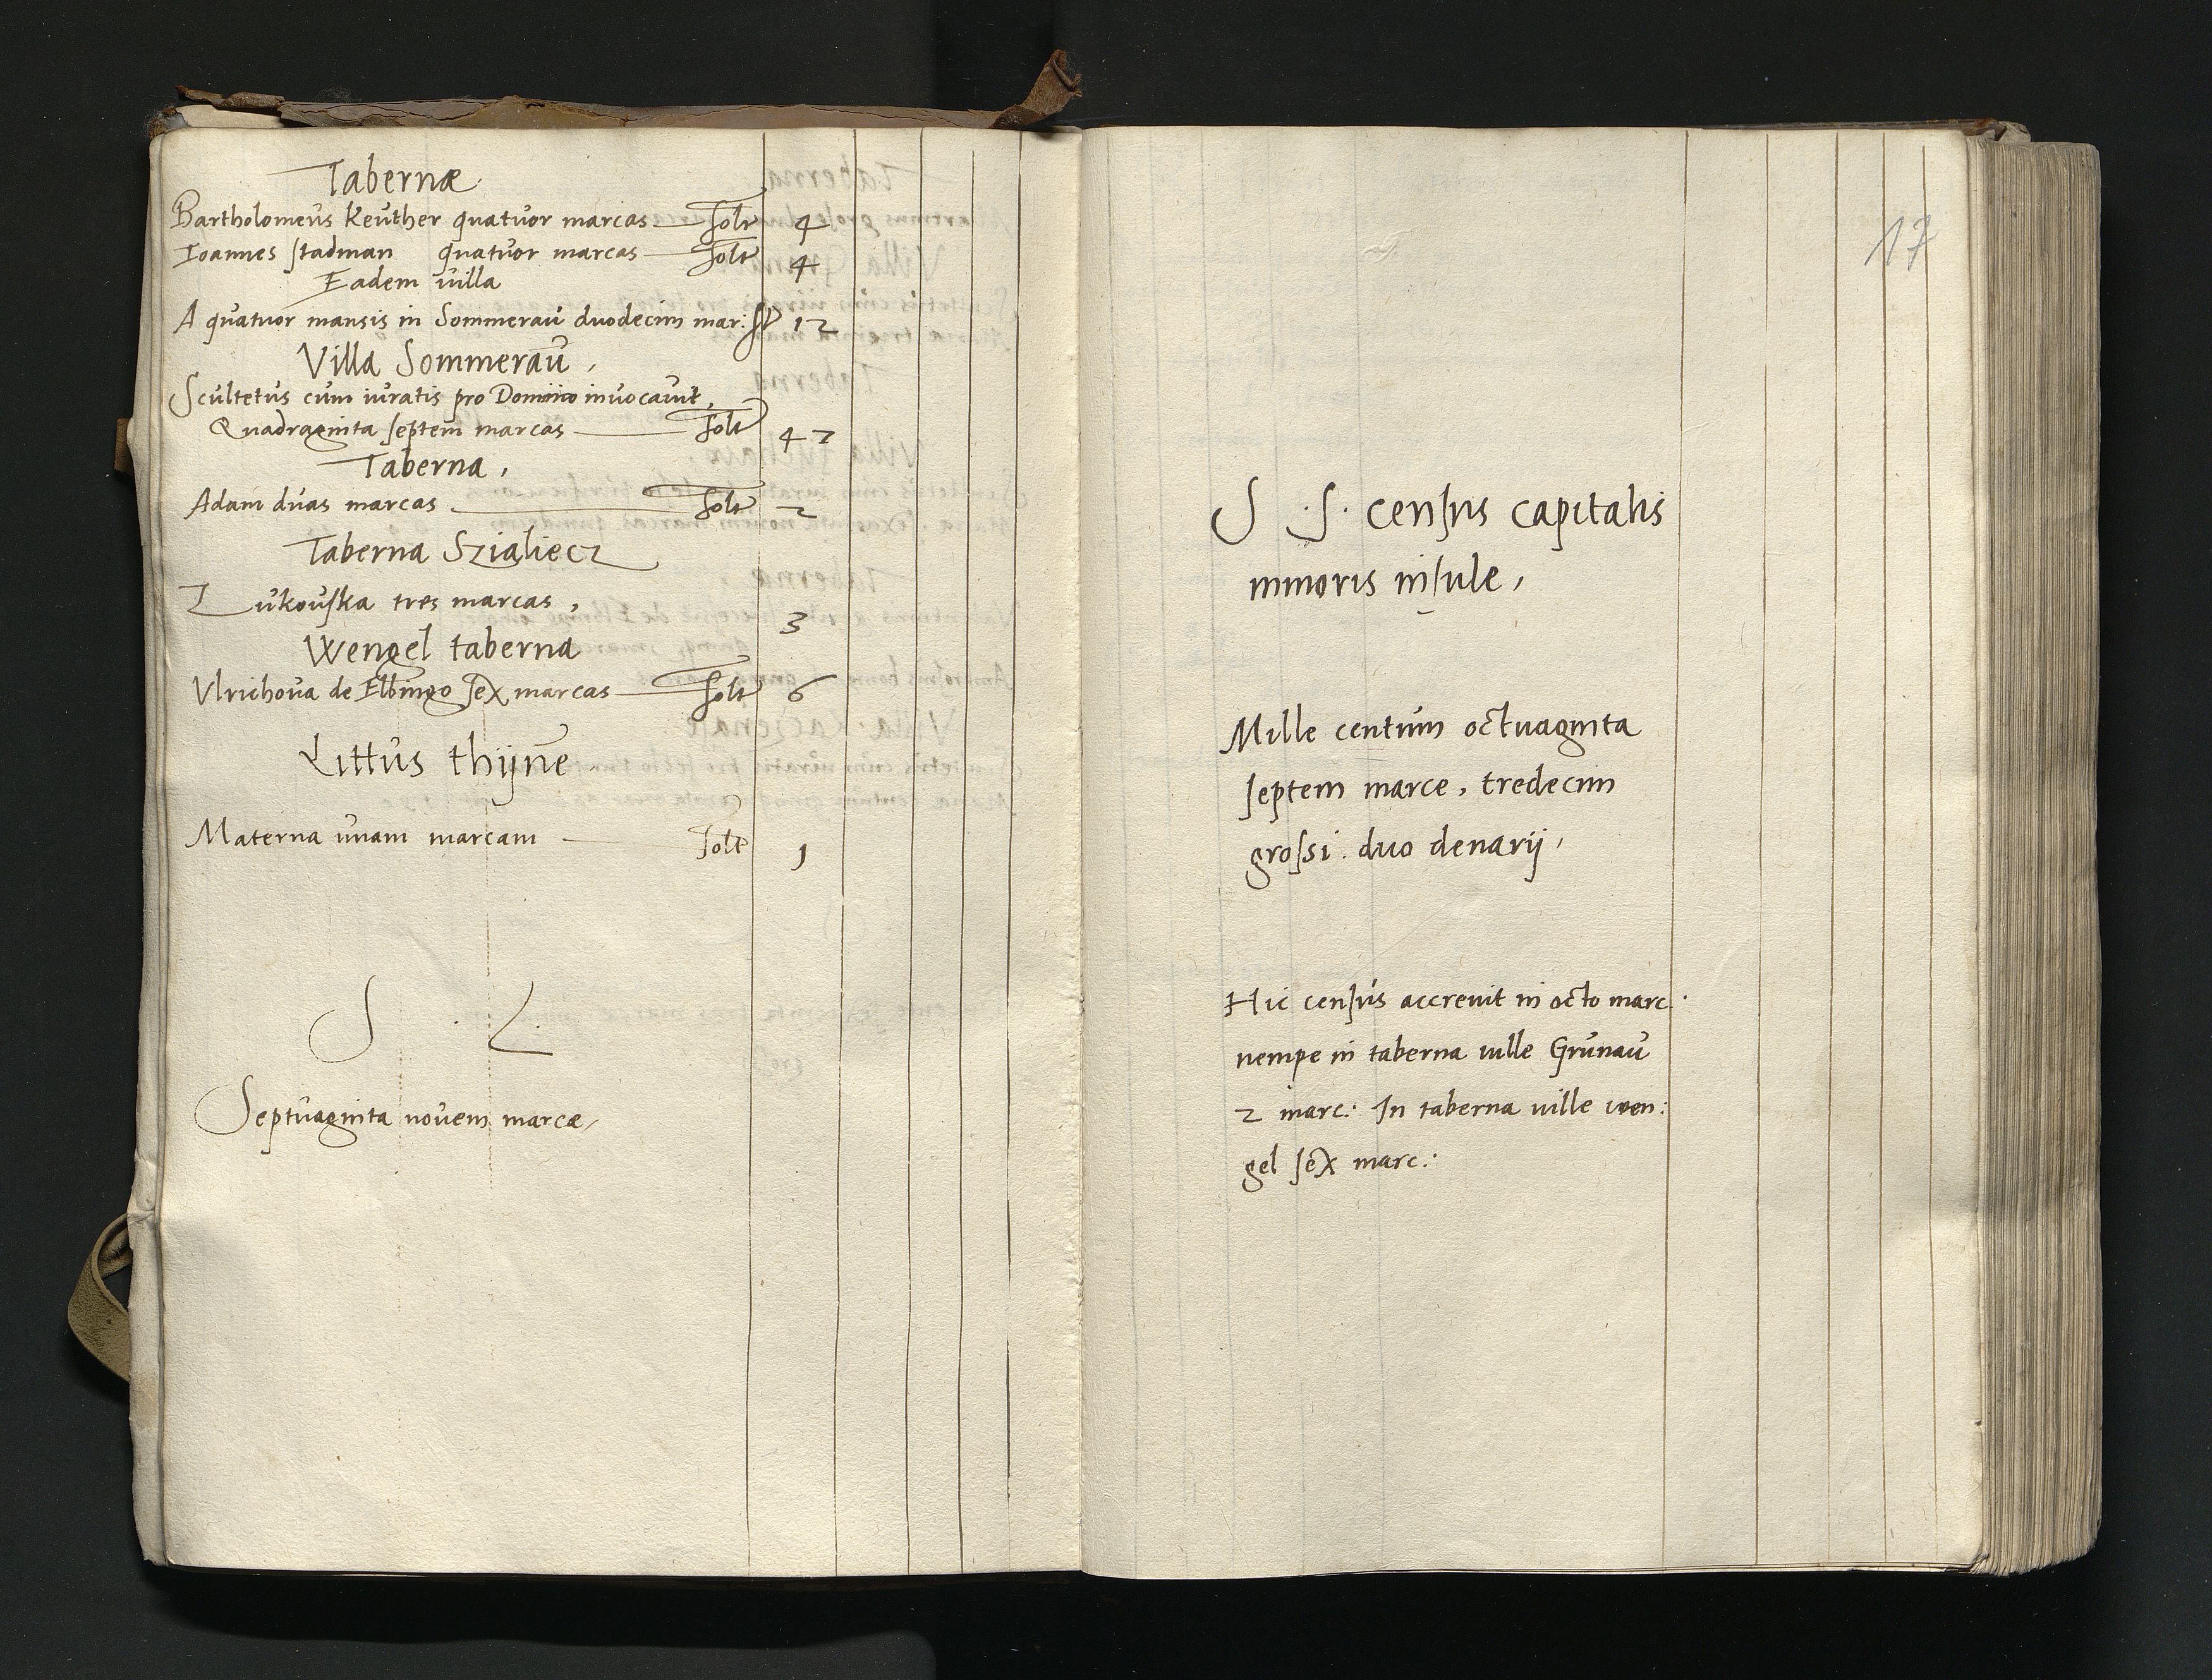 Tabernæ
Bartholomeus Keuther quatuor marcas Solt 4
Ioannes Stadman quatuor marcas Solt 4
Eadem villa
A quatuor mansis in Sommerau duodecim mar: 12
Villa Sommerau,
Scultetus cum iuratis pro Dominica invocavit,
Quadraginta septem marcas Solt 47
Taberna,
Adam duas marcas Solt 2
Taberna Szialiecz
Zukouska tres marcas, 3
Wengel taberna
Vlrichova de Elbingo sex marcas Solt 6
Littus thijne
Materna unam marcam Solt 1
S . L.
Septuaginta novem marcæ,
17
S .S. census capitalis
minoris insule,
Mille centum octuaginta
septem marce, tredecim
grossi. duo denarij,
Hic census accrevit in octo marc.
nempe in taberna ville Grunau
2 marc: In taberna ville wen:
gel sex marc: